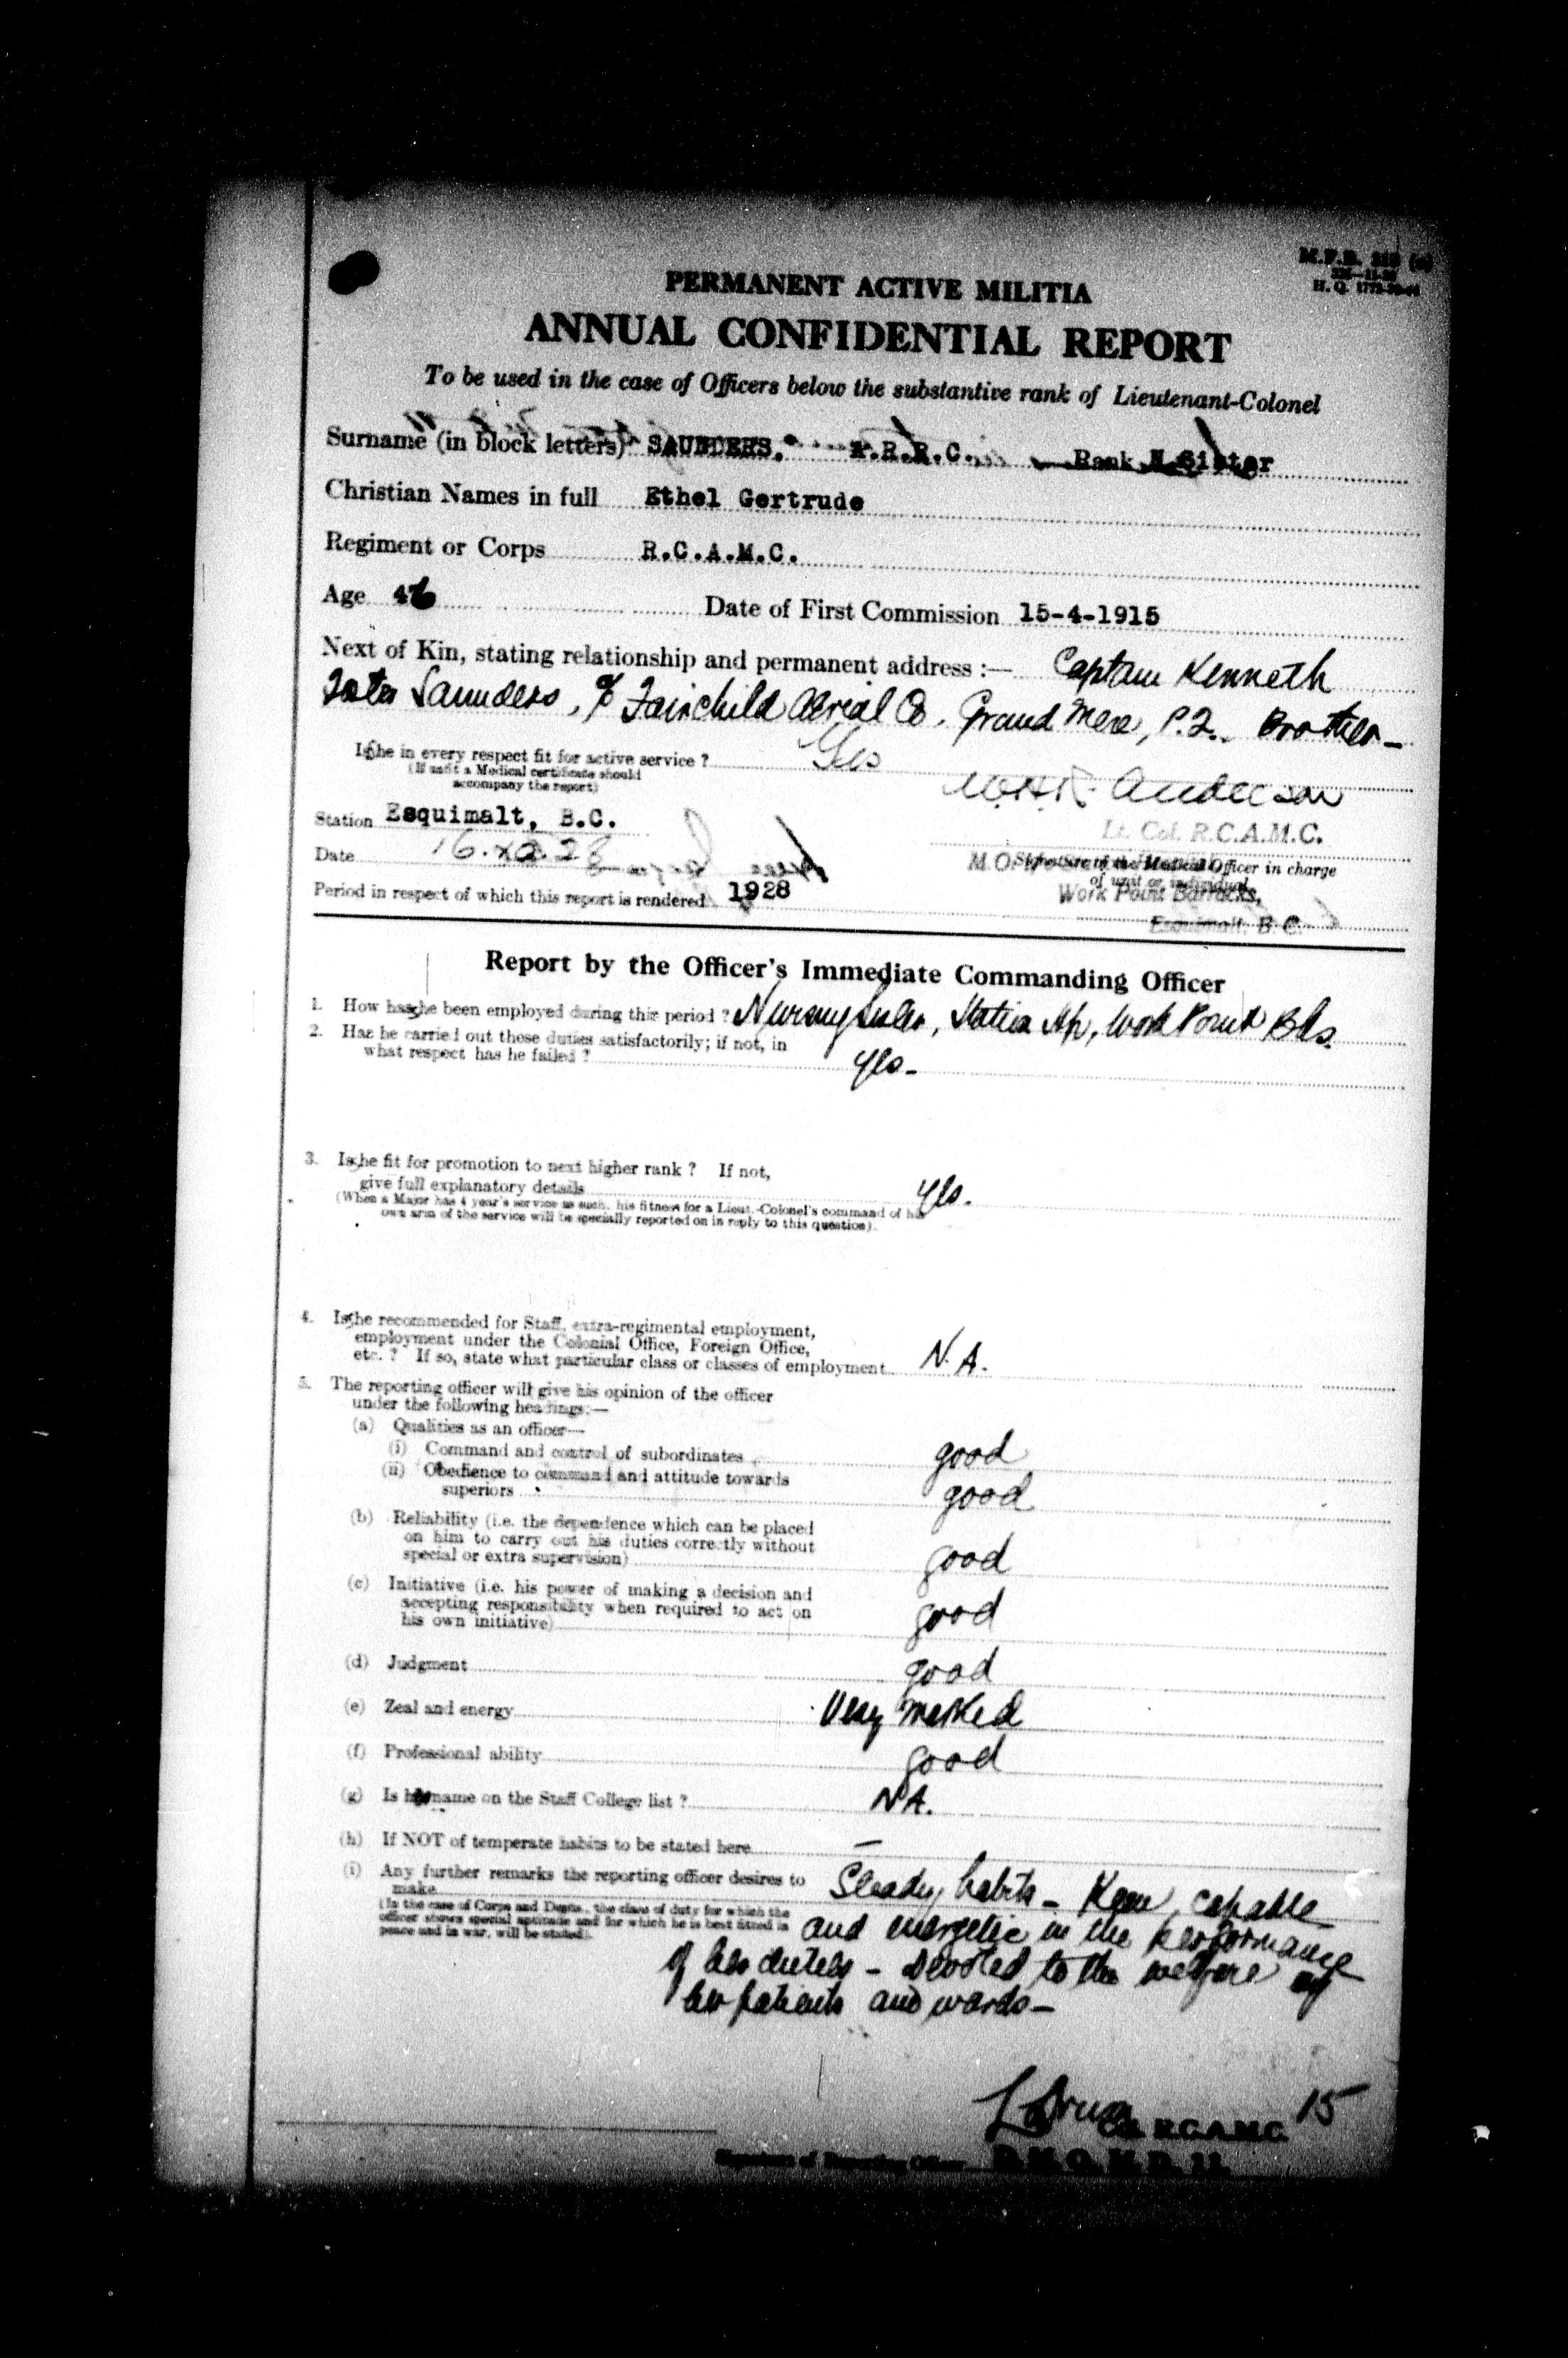 M.F.B.
H. Q.
PERMANENT ACTIVE MILITIA
ANNUAL CONFIDENTIAL REPORT
To be used in the case of Officers below the substantive rank of Lieutenant-Colonel
Surname (in block letters) SAUNDERS, A.R.R.C. Rank N.Sister
Christian Names in full Ethel Gertrude
Regiment or Corps R.C.A.M.C.
Age 46 Date of First Commission 15-4-1915
Next of Kin, stating relationship and permanent address :— Captain Kenneth
Saunders, c/o Fairchild Aerial Co, Grand Mere, P.Q. Brother—
Is she in every respect fit for active service ? Yes
(If unfit a Medical certificate should
accompany the report)
Anderson
Station Esquimalt, B.C.
Lt. Col. R.C.A.M.C.
Date
M.O. Signature of the Medical Officer in charge
of unit or individual
Period in respect of which this report is rendered 1928
Work Point Barracks,
Esquimalt, B. C.
Report by the Officer's Immediate Commanding Officer
1. How has she been employed during this period ? Nursing Sister, Station Hp, Work Point Bks.
2. Has he carried out these duties satisfactorily; if not, in
what respect has he failed ? Yes-
3. Is she fit for promotion to next higher rank ? If not,
give full explanatory details yes.
(When a Major has 4 year's service as such, his fitness for a Lieut.-Colonel's command of his
own arm of the service will be specially reported on in reply to this question).
4. Is she recommended for Staff, extra-regimental employment,
employment under the Colonial Office, Foreign Office,
etc. ? If so, state what particular class or classes of employment N.A.
5. The reporting officer will give his opinion of the officer
under the following headings:—
(a) Qualities as an officer—
(i) Command and control of subordinates good
(ii) Obedience to command and attitude towards
superiors good
(b) Reliability (i.e. the dependence which can be placed
on him to carry out his duties correctly without
special or extra supervision) good
(c) Initiative (i.e. his power of making a decision and
accepting responsibility when required to act on
his own initiative) good
(d) Judgment good
(e) Zeal and energy Very marked
(f) Professional ability good
(g) Is her name on the Staff College list ? NA.
(h) If NOT of temperate habits to be stated here —
(i) Any further remarks the reporting officer desires to
make Steady habits - Keen, capable
(In the case of Corps and Depts., the class of duty for which the
officer shows special aptitude and for which he is best fitted in
peace and in war, will be stated).
and energetic in the performance
of her duties - Devoted to the welfare of
her patients and wards-
15
R.C.A.M.C.
Signature of Reporting Officer D.M.O. M.D. 11.